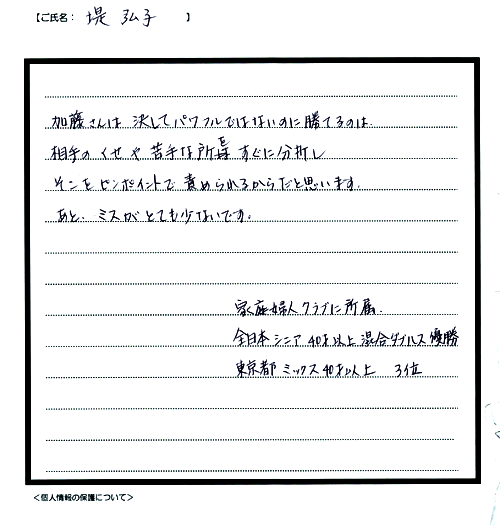 【ご氏名： 堤 弘子 】
加藤さんは 決してパワフルではないのに勝てるのは、
相手の くせや 苦手な所を すぐに分析し
そこを ピンポイントで 責められるからだと思います。
あと、ミスがとても少ないです。
家庭婦人クラブに所属。
全日本シニア 40才以上 混合ダブルス 優勝
東京都 ミックス40才以上 3位
＜個人情報の保護について＞